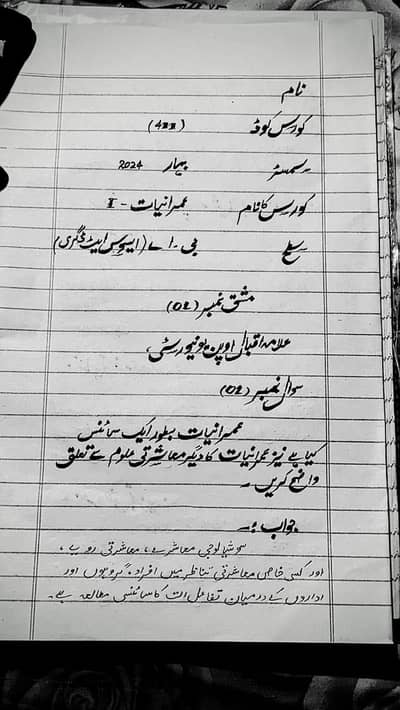 نام
کورس کوڈ (422)
سمسٹر بہار 2024
کورس کا نام عمرانیات - I
سطح بی ۔ اے (ایسوسی ایٹ ڈگری)
مشق نمبر (02)
علامہ اقبال اوپن یونیورسٹی
سوال نمبر (02)
عمرانیات بطور ایک سائنس
کیا ہے نیز عمرانیات کا دیگر معاشرتی علوم سے تعلق
واضح کریں ۔
جواب :۔
سوشیالوجی معاشرے ، معاشرتی رویے ،
اور کسی خاص معاشرتی تناظر میں افراد ، گروہوں اور
اداروں کے درمیان تفاعلات کا سائنسی مطالعہ ہے ۔